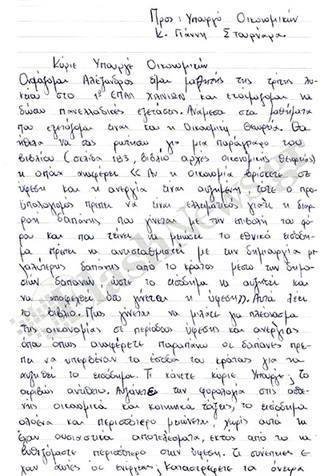 Προς: Υπουργό Οικονομικών
Κ. Γιάννη Στουρνάρα
Κύριε Υπουργέ Οικονομικών
Ονομάζομαι Αλέξανδρος είμαι μαθητής της τρίτης λυ-
κείου στο 1ο ΕΠΑΛ ΧΑΝΙΩΝ και ετοιμάζομαι να
δώσω πανελλαδικές εξετάσεις. Ανάμεσα στα μαθήματα
που εξετάζομαι είναι και η Οικονομική Θεωρία. Θα
ήθελα να σας ρωτήσω για μια παράγραφο του
βιβλίου (σελίδα 185, βιβλίο αρχές οικονομικής θεωρίας)
η οποία αναφέρει << Αν η οικονομία βρίσκετε σε
ύφεση και η ανεργία είναι αυξημένη τότε ο προ-
ϋπολογισμός πρέπει να είναι ελλειματικός γιατί η διαρ-
ροή δαπάνης που γίνεται με την επιβολή του φό-
ρου και που τείνει να μειώσει το εθνικό εισόδη-
μα πρέπει να αντισταθμιστεί με την δημιουργία με-
γαλύτερης δαπάνης από το κράτος μέσω των δημο-
σίων δαπανών ώστε το εισόδημα να αυξηθεί και
να αποφευχθεί όσο γίνεται η ύφεση>>. Αυτά λέει
το βιβλίο. Πως γίνεται να μιλάτε για πλεόνασμα
της οικονομίας σε περίοδος ύφεσης και ανεργίας
όπου όπως αναφέρετε παραπάνω οι δαπάνες πρέ-
πει να υπερβαίνουν τα έσοδα του κράτους για να
αυξηθεί το εισόδημα. Τι κάνετε κύριε Υπουργέ; το
ακριβώς αντίθετο. Αυξάνετε την φορολογία στις ασθε-
νής οικονομικά και κοινωνικά τάξεις, το εισόδημα
ολοένα και περισσότερο μειώνετε, χωρίς αυτό να
έχει ουσιαστικά αποτελέσματα, εκτός από το να
βυθιζόμαστε περισσότερο στην ύφεση. Τι συνέπειες έ-
χουν αυτές οι ενέργειες, Καταστρέφετε τα όνειρα